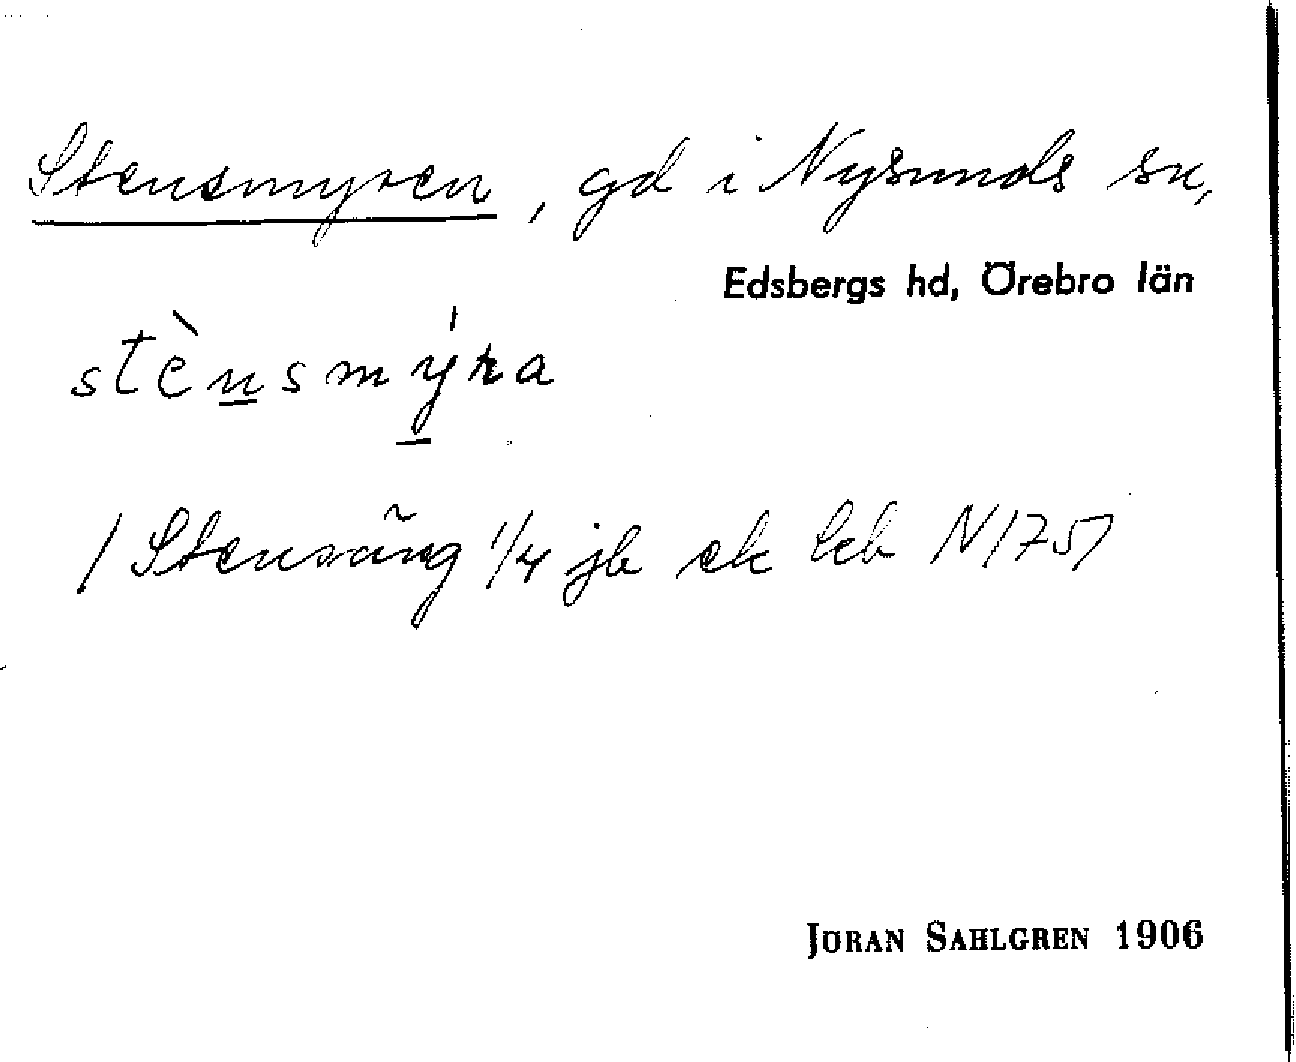 Stensmyren, gd i Nysunds sn,
Edsbergs hd, Örebro län
stènsmýra
/ Stensäng 1/4 jb ek leb N 1757
JÖRAN SAHLGREN 1906